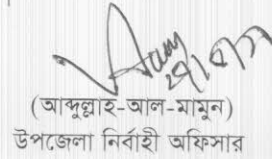 (আব্দুল্লাহ-আল-মামুন)
উপজেলা নির্বাহী অফিসার